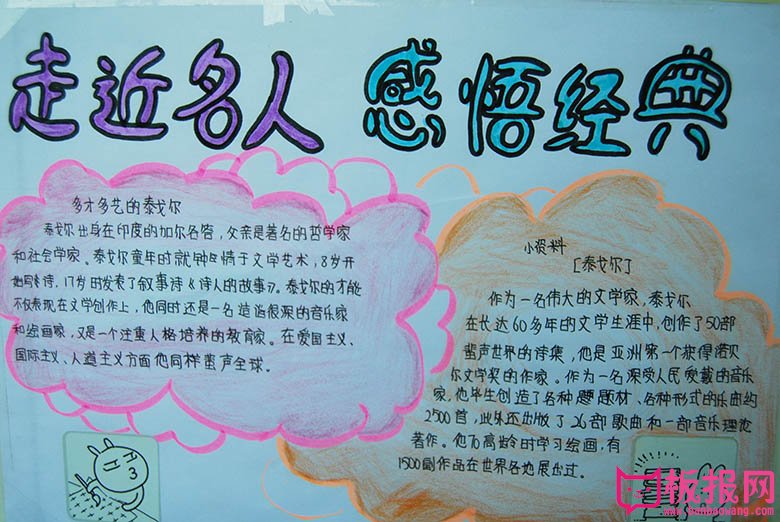 走近名人 感悟经典
多才多艺的泰戈尔
泰戈尔出身在印度的加尔各答，父亲是著名的哲学家
和社会学家。泰戈尔童年时就钟情于文学艺术，8岁开
始写诗，17岁时发表了叙事诗《诗人的故事》。泰戈尔的才能
不仅表现在文学创作上，他同时还是一名造诣很深的音乐家
和绘画家，又是一个注重人格培养的教育家。在爱国主义、
国际主义、人道主义方面他同样蜚声全球。
小资料
[泰戈尔]
作为一名伟大的文学家，泰戈尔
在长达60多年的文学生涯中，创作了50部
蜚声世界的诗集，他是亚洲第一个获得诺贝
尔文学奖的作家。作为一名深受人民爱戴的音乐
家，他毕生创造了各种题题材、各种形式的乐曲约
2500首，此外还出版了26部歌曲和一部音乐理论
著作。他70高龄时学习绘画，有
1500副作品在世界各地展出过。
板报网
www.banbaowang.com